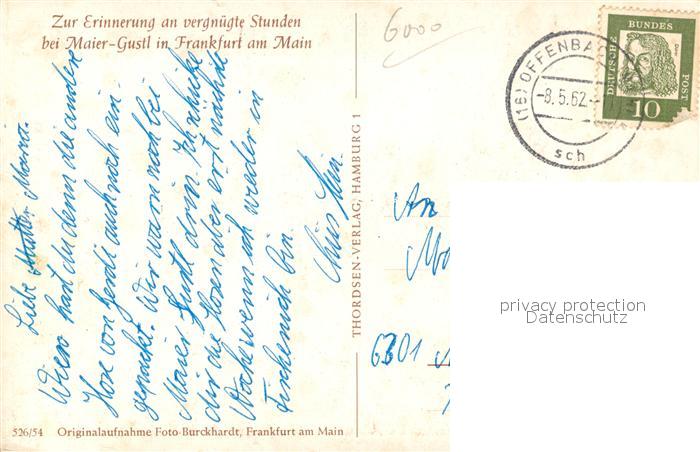 Zur Erinnerung an vergnügte Stunden
bei Maier-Gustl in Frankfurt am Main
6000
(16) OFFENBA
-8.5.62.-
sch
DEUTSCHE
BUNDES
POST
10
Liebe Mutter Maria.
Wieso hast du denn die andere
Hose von Gerdi auch noch ein-
gepackt. Wir waren noch bei
Maier Gustl drin. Ich schicke
dir die Hosen aber erst nächste
Woche wenn ich wieder in
bin.
THORDSEN-VERLAG, HAMBURG 1
An
6301
privacy protection
Datenschutz
526/54 Originalaufnahme Foto-Burckhardt, Frankfurt am Main